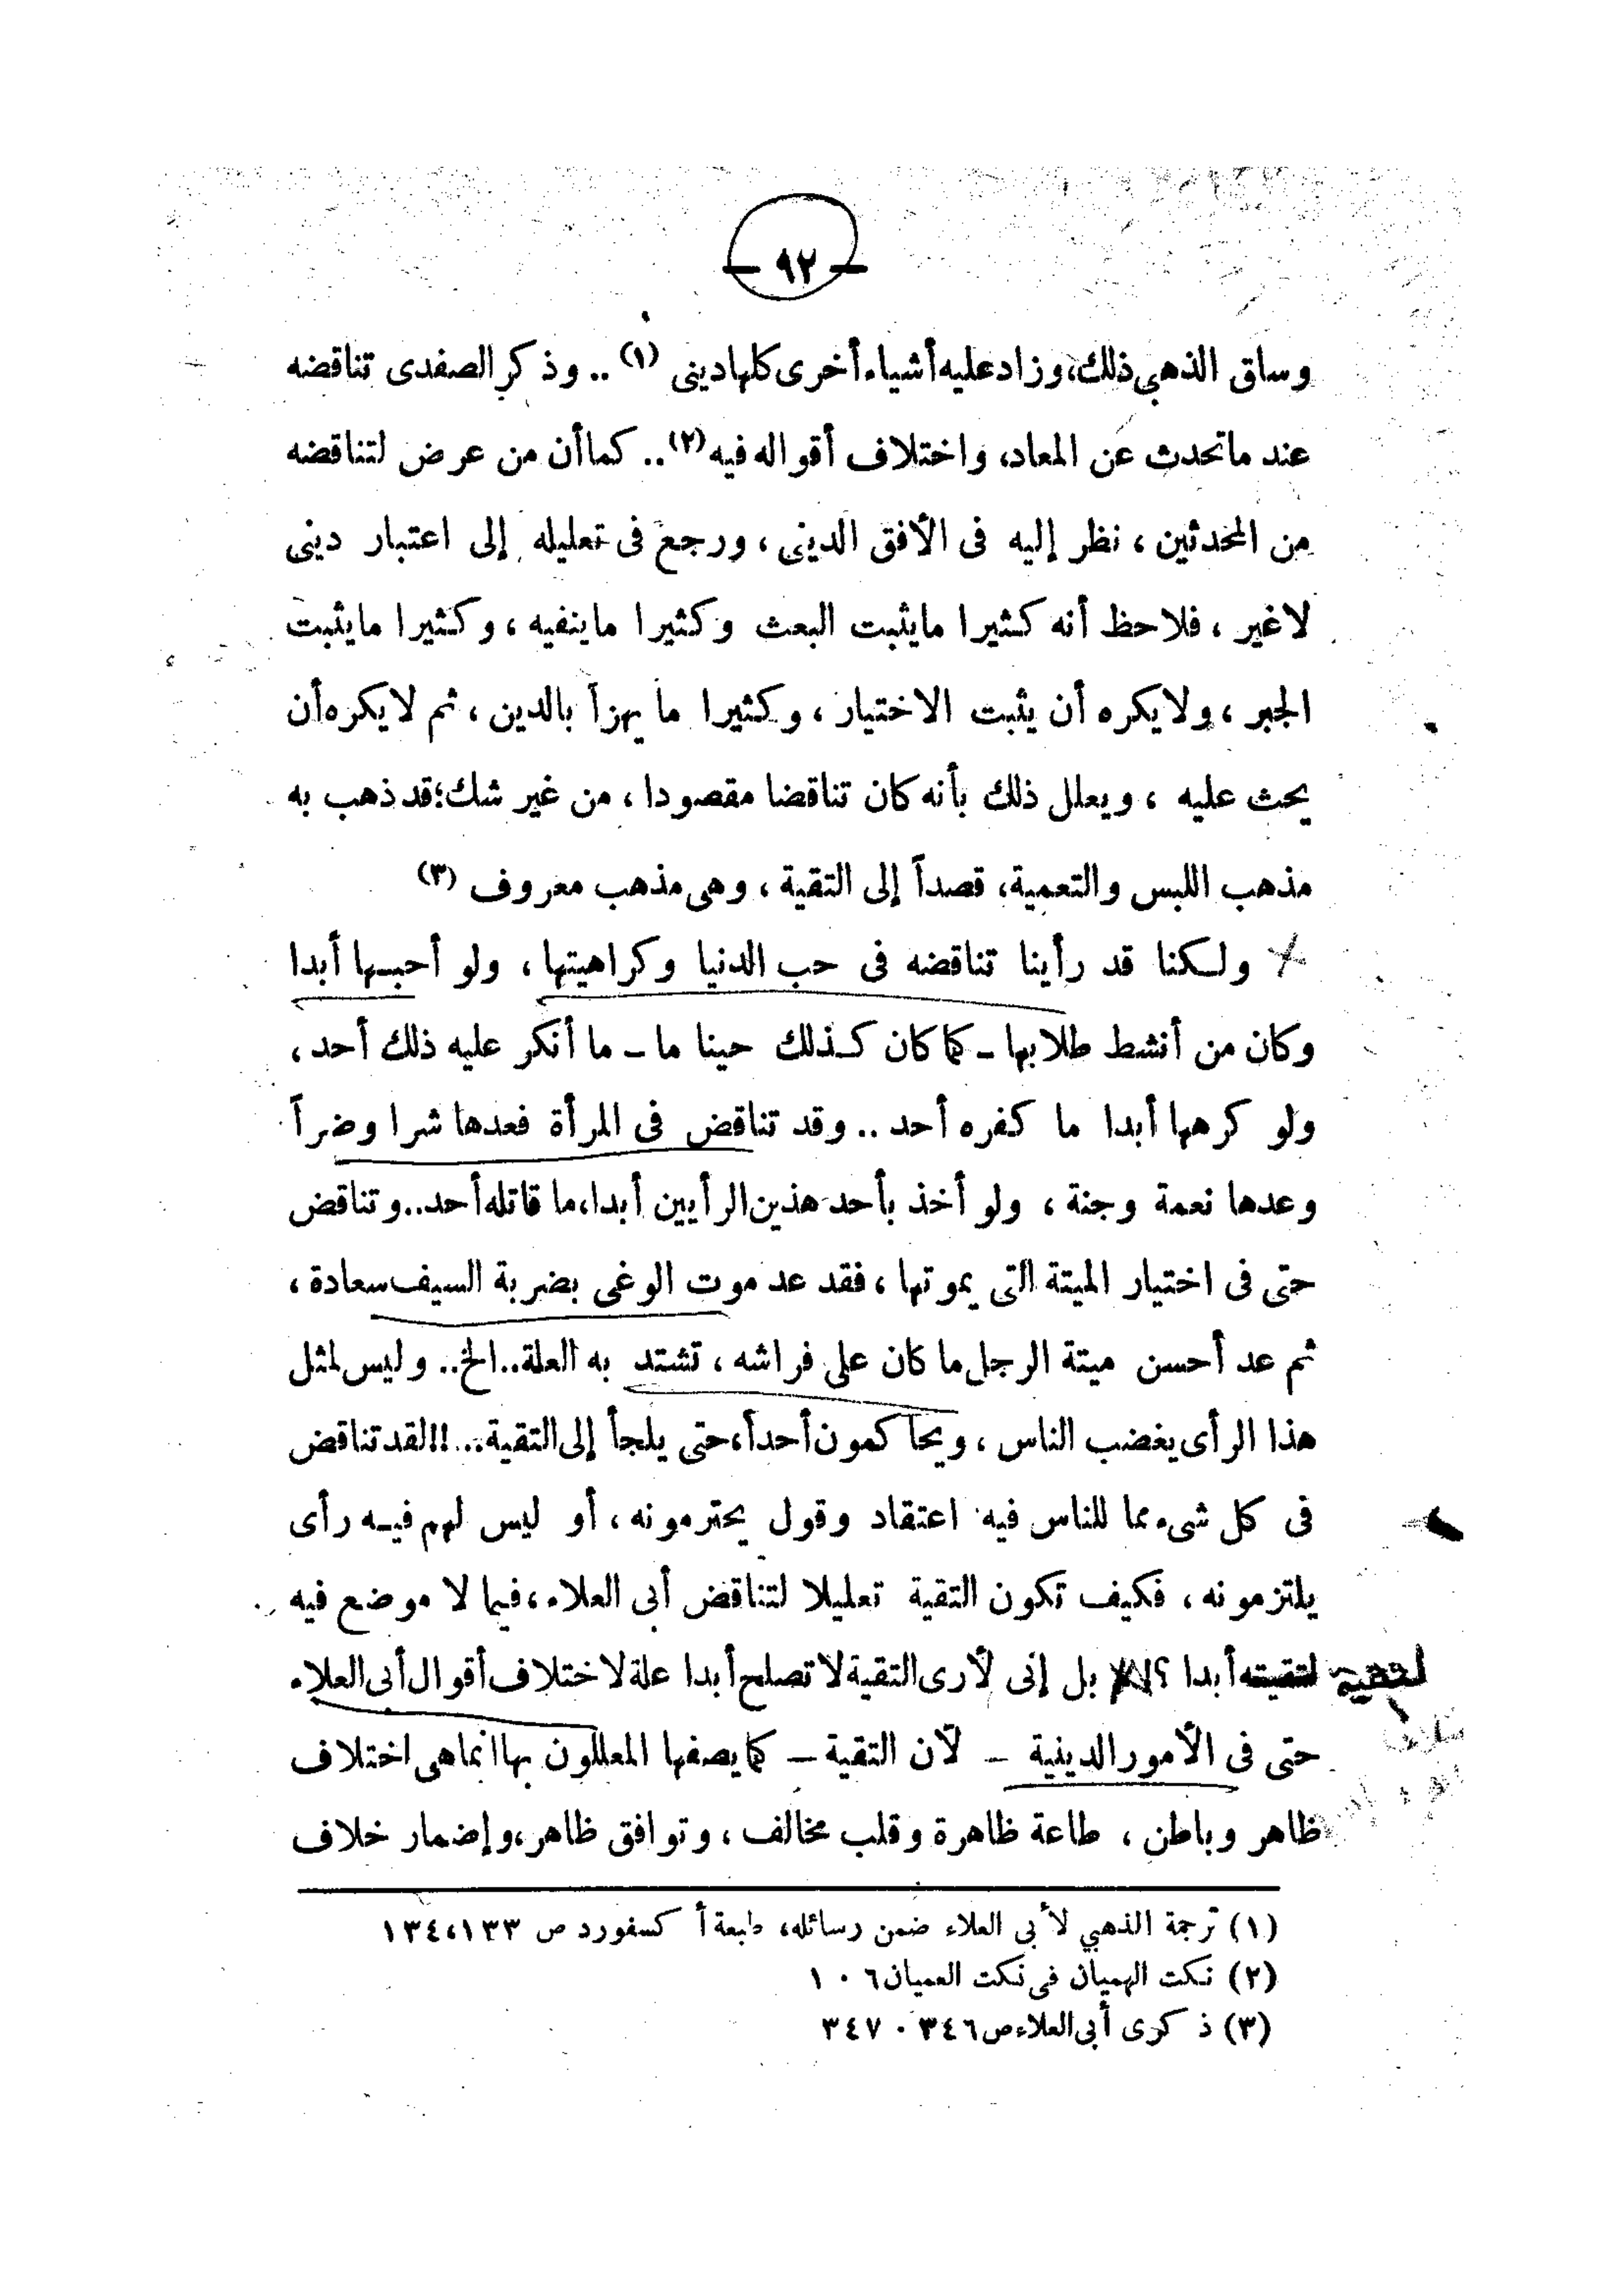 — ٩٢ —
وساق الذهبي ذلك، وزاد عليه أشياء أخرى كلها دينى (١) .. وذكر الصفدى تناقضه
عند ما تحدث عن المعاد، واختلاف أقواله فيه (٢).. كما أن من عرض لتناقضه
من المحدثين ، نظر إليه فى الأفق الدينى ، ورجع فى تعليله إلى اعتبار دينى
لا غير ، فلاحظ أنه كثيرا ما يثبت البعث وكثيرا ما ينفيه ، وكثيرا ما يثبت
الجبر ، ولا يكره أن يثبت الاختيار ، وكثيرا ما يهزأ بالدين ، ثم لا يكره أن
يحث عليه ، ويعلل ذلك بأنه كان تناقضا مقصودا ، من غير شك؛ قد ذهب به
مذهب اللبس والتعمية، قصداً إلى التقية ، وهى مذهب معروف (٣)
ولكنا قد رأينا تناقضه فى حب الدنيا وكراهيتها ، ولو أحبها أبدا
وكان من أنشط طلابها – كما كان كذلك حينا ما – ما أنكر عليه ذلك أحد ،
ولو كرهها أبدا ما كفره أحد .. وقد تناقض فى المرأة فعدها شرا وضراً
وعدها نعمة وجنة ، ولو أخذ بأحد هذين الرأيين أبدا، ما قاتله أحد.. وتناقض
حتى فى اختيار الميتة التى يموتها ، فقد عد موت الوغى بضربة السيف سعادة ،
ثم عد أحسن ميتة الرجل ما كان على فراشه ، تشتد به العلة..الخ.. وليس لمثل
هذا الرأى يغضب الناس ، ويحاكمون أحداً، حتى يلجأ إلى التقية.. !! لقد تناقض
فى كل شىء مما للناس فيه اعتقاد وقول يحترمونه ، أو ليس لهم فيه رأى
يلتزمونه ، فكيف تكون التقية تعليلا لتناقض أبى العلاء ، فيما لا موضع فيه
لتقيته أبدا ؟ بل إنى لأرى التقية لا تصلح أبدا علة لاختلاف أقوال أبى العلاء
حتى فى الأمور الدينية – لأن التقية – كما يصفها المعللون بها انما هى اختلاف
ظاهر وباطن ، طاعة ظاهرة وقلب مخالف ، وتوافق ظاهر، وإضمار خلاف
(١) ترجمة الذهبي لأبى العلاء ضمن رسائله، طبعة أكسفورد ص ١٣٣،١٣٤
(٢) نكت الهميان فى نكت العميان ١٠٦
(٣) ذكرى أبى العلاء ص ٣٤٦ . ٣٤٧